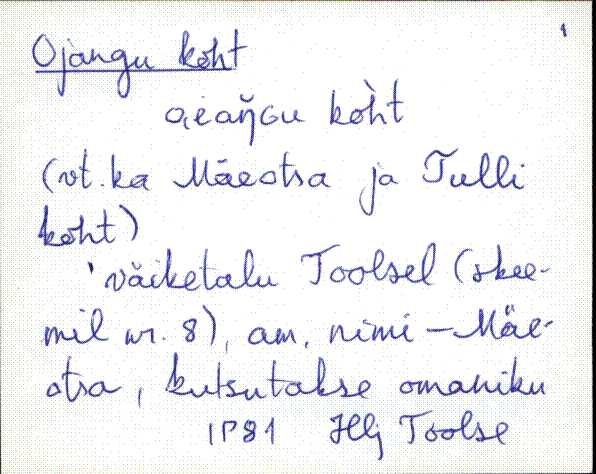 1
Ojangu koht
o̭i̭aŋ̆ɢu kòht
(vt. ka Mäeotsa ja Tulli
koht)
'väiketalu Toolsel (skee-
mil nr. 8), am. nimi – Mäe-
otsa, kutsutakse omaniku
1981 Hlj Toolse